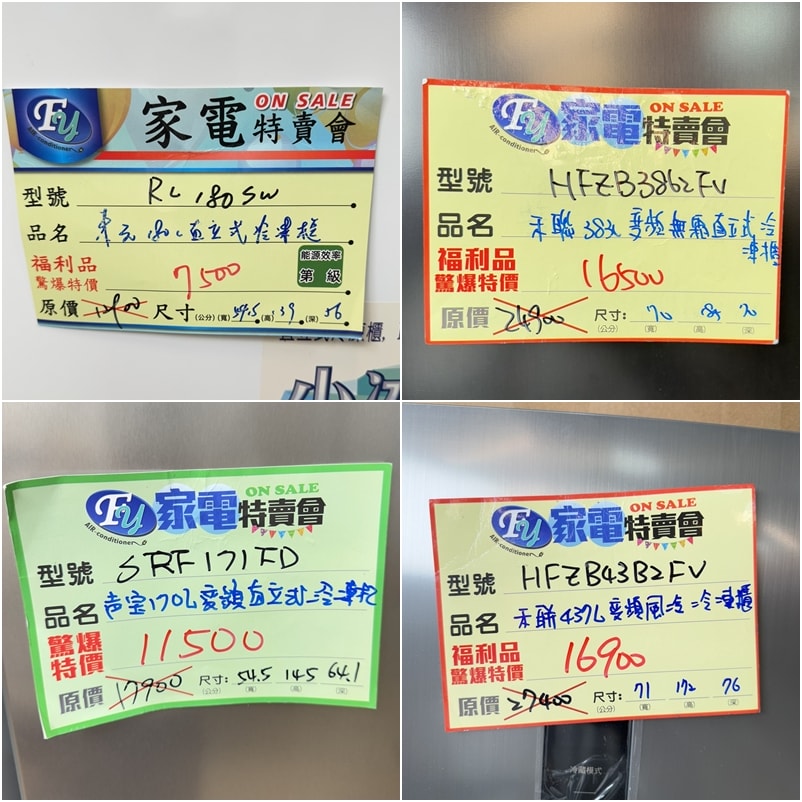 Fy
AIR-conditioner
家電特賣會 ON SALE
型號 RL180SW
品名 東元180L直立式冷凍櫃
福利品
驚爆特價 7500
能源效率
第 級
原價 尺寸(公分)(寬) (高) (深)56
Fy
AIR-conditioner
家電特賣會 ON SALE
型號 HFZB3862FV
品名 禾聯383L變頻無霜直立式冷
凍櫃
福利品
驚爆特價 16500
原價 24900 尺寸:(公分) 70(寬) 185(高) 70(深)
Fy
AIR-conditioner
家電特賣會 ON SALE
型號 SRF171FD
品名 声宝170L變頻直立式冷凍櫃
驚爆
特價 11500
原價 17900 尺寸:(公分) 54.5(寬) 145(高) 64.1(深)
Fy
AIR-conditioner
家電特賣會 ON SALE
型號 HFZB43B2FV
品名 禾聯437L變頻風冷冷凍櫃
福利品
驚爆特價 16900
原價 27400 尺寸:(公分) 71(寬) 172(高) 76(深)
冷藏模式